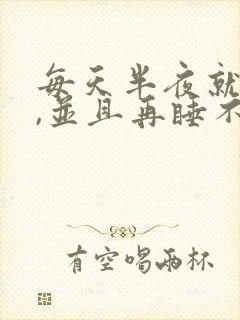 每天半夜就
,並且再睡不
有空喝兩杯